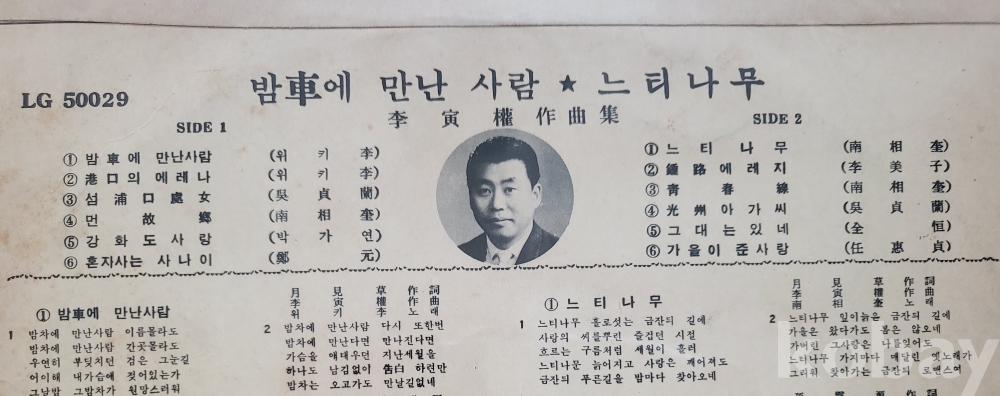 LG 50029
밤車에 만난 사람 ★ 느티나무
李寅權作曲集
SIDE 1
① 밤車에 만난사람 (위키李)
② 港口의 에레나 (위키李)
③ 섬浦口處女 (吳貞蘭)
④ 먼故鄕 (南相奎)
⑤ 강화도사랑 (박가연)
⑥ 혼자사는 사나이 (鄭元)
SIDE 2
① 느티나무 (南相奎)
② 鍾路에레지 (李美子)
③ 靑春線 (南相奎)
④ 光州아가씨 (吳貞蘭)
⑤ 그대는있네 (全恒)
⑥ 가을이 준사랑 (任惠貞)
① 밤車에 만난사람
月見草作詞
李寅權作曲
위키李노래
1 밤차에 만난사람 이름몰라도
밤차에 만난사람 간곳몰라도
우연히 부딪치던 검은 그눈길
어이해 내가슴에 젖어있는가
그날밤 그밤차가 원망스러워
2 밤차에 만난사람 다시 또한번
밤차에 만난다면 만나진다면
가슴을 애태우던 지난세월을
하나도 남김없이 告白 하련만
밤차는 오고가도 만날길없네
① 느티나무
月見草作詞
李寅權作曲
南相奎노래
1 느티나무 홀로섯는 금잔듸 길에
사랑의 씨를뿌린 즐겁던 시절
흐르는 구름처럼 세월이 흘러
느티나문 늙어지고 사랑은 깨어져도
금잔듸 푸른길을 밤마다 찾아오네
2 느티나무 잎이늙은 금잔듸 길에
가을은 왔다가도 봄은 않오네
가버린 그사랑은 나를잊어도
느티나무 가지마다 매달린 옛노래가
그리워 찾아가는 금잔듸 로맨스여
kobay